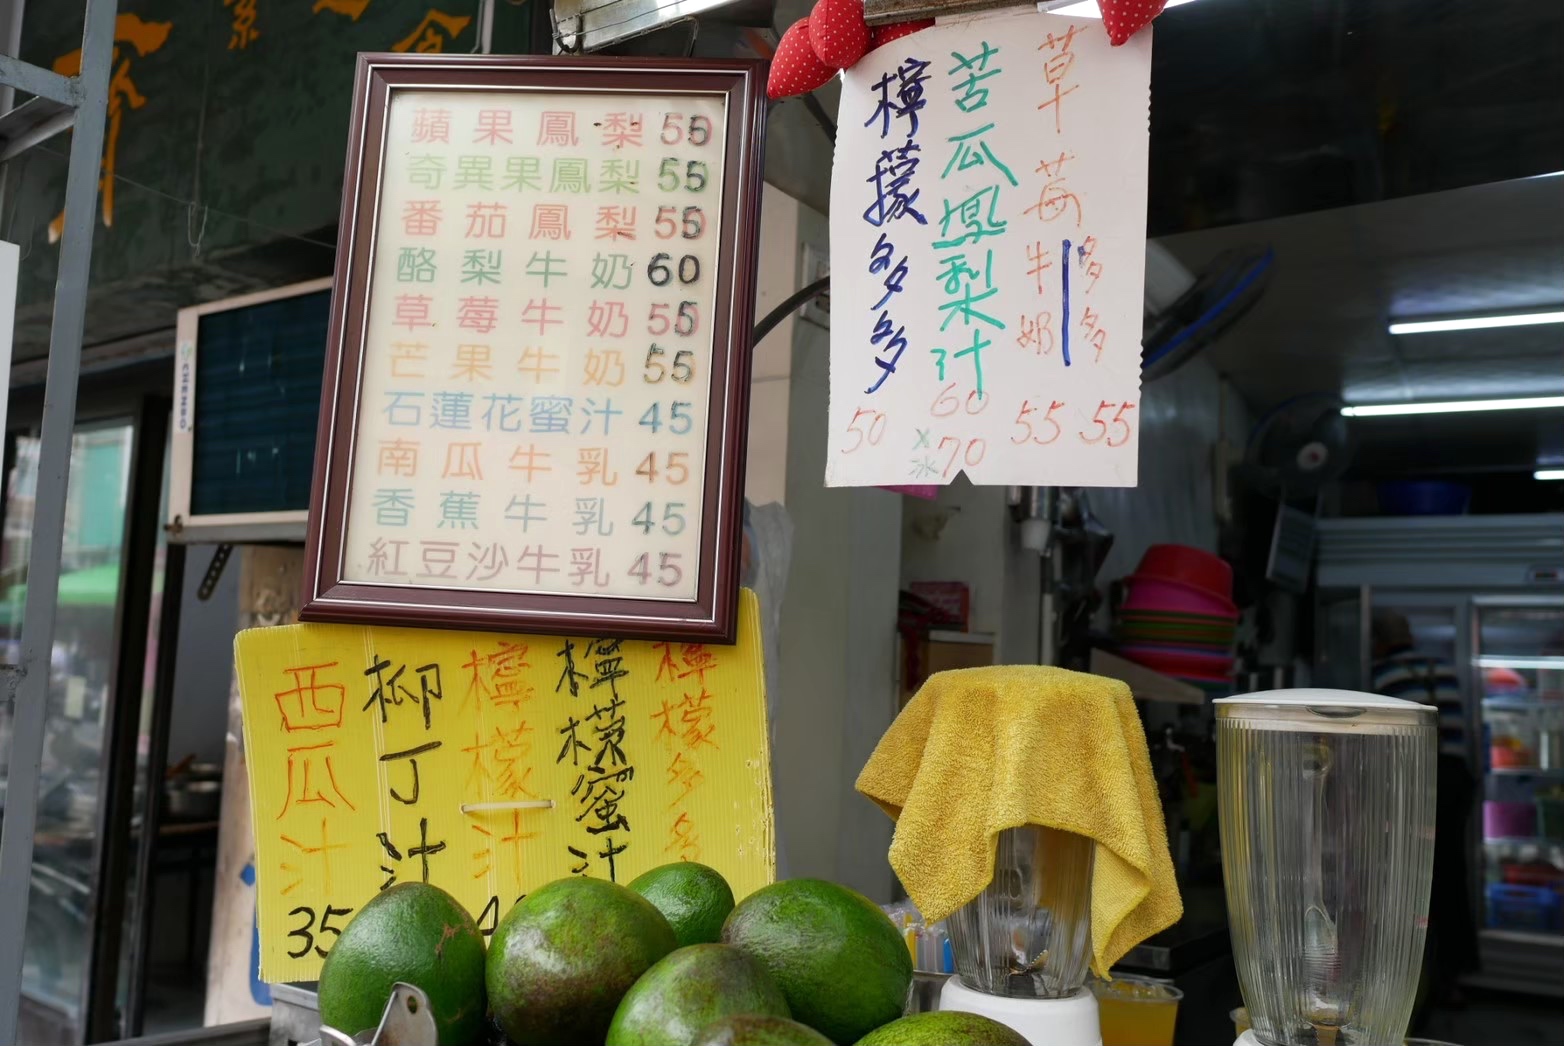 蘋果鳳梨 55
奇異果鳳梨 55
番茄鳳梨 55
酪梨牛奶 60
草莓牛奶 55
芒果牛奶 55
石蓮花蜜汁 45
南瓜牛乳 45
香蕉牛乳 45
紅豆沙牛乳 45
草莓
牛奶
55
多多
55
苦瓜鳳梨汁
60
X冰70
檸檬多多
50
西瓜汁
35
柳丁汁
檸檬汁
檸檬蜜汁
檸檬多多